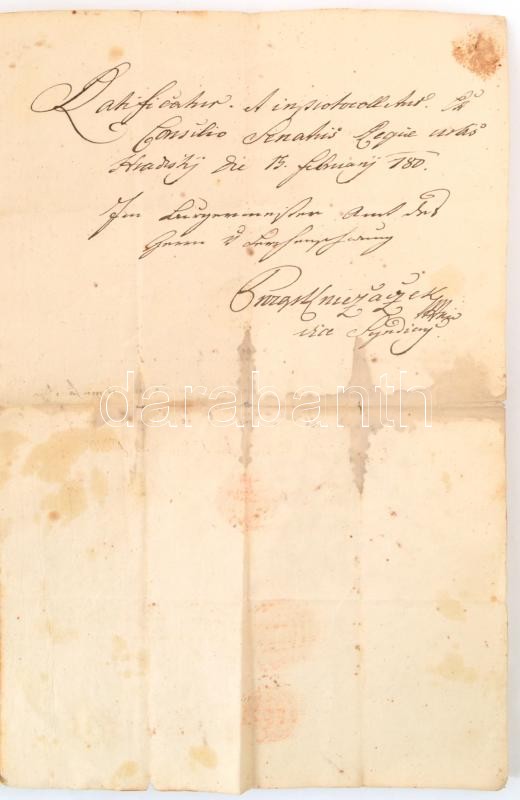 Ratificatur. et inprotocolletur. Ex
Consilio Senatus Regiae urbis
Hradisky die 13. february 180.
Im Burgermeister Amt des
Herrn v
vice Syndicus
darabanth